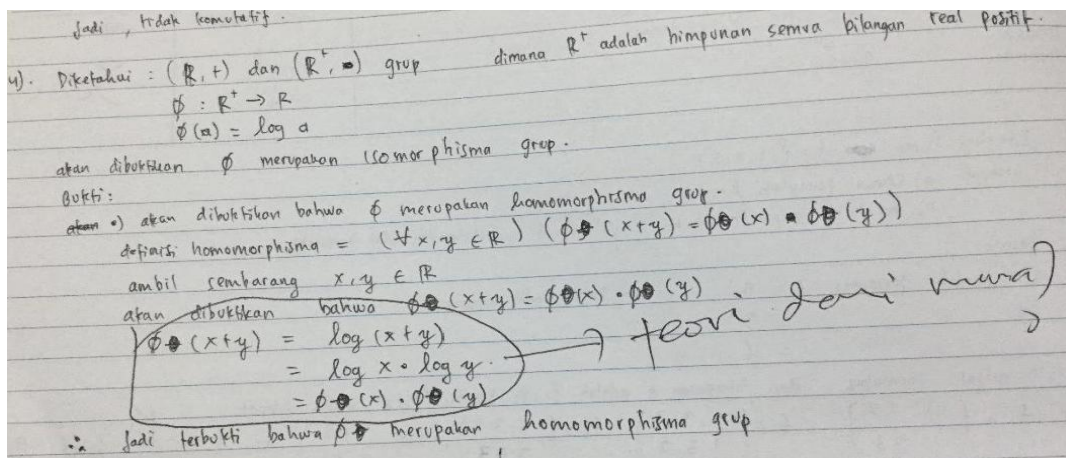 Jadi, tidak komutatif.
4). Diketahui : (R, +) dan (R⁺, •) grup dimana R⁺ adalah himpunan semua bilangan real positif.
ϕ : R⁺ → R
ϕ(a) = log a
akan dibuktikan ϕ merupakan isomorphisma grup.
Bukti:
•) akan dibuktikan bahwa ϕ merupakan homomorphisma grup.
definisi homomorphisma = (∀ x, y ∈ R) (ϕ (x+y) = ϕ(x) • ϕ(y))
ambil sembarang x, y ∈ R
akan dibuktikan bahwa ϕ(x+y) = ϕ(x) • ϕ(y)
ϕ(x+y) = log (x+y) → teori dari mana
= log x • log y.
= ϕ(x) . ϕ(y)
∴ Jadi terbukti bahwa ϕ merupakan homomorphisma grup